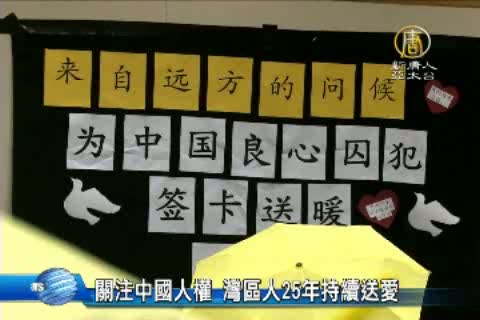 唐
新唐人
亞太台
来自远方的问候
为中国良心囚犯
签卡送暖
關注中國人權 灣區人25年持續送愛